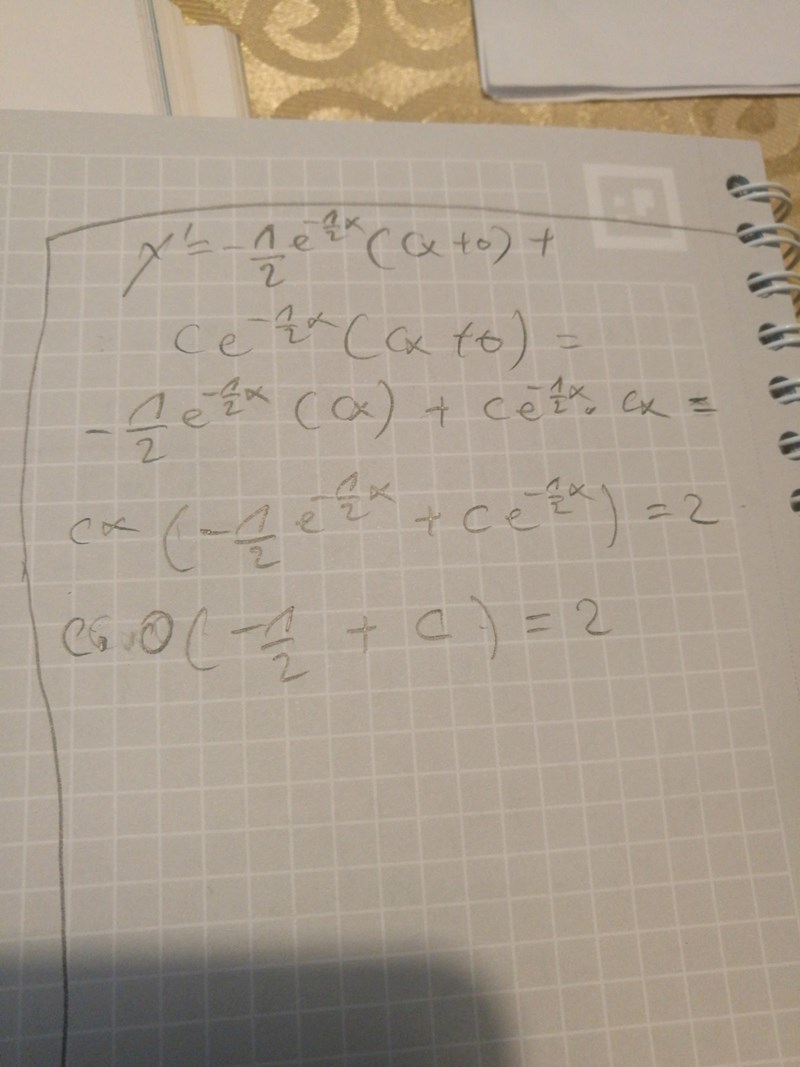 y' = -1/2 e^{-1/2 x} (cx + 0) +
c e^{-1/2 x} (cx + 0) =
-1/2 e^{-1/2 x} (cx) + c e^{-1/2 x} · cx =
cx (-1/2 e^{-1/2 x} + c e^{-1/2 x}) = 2
0 (-1/2 + c) = 2